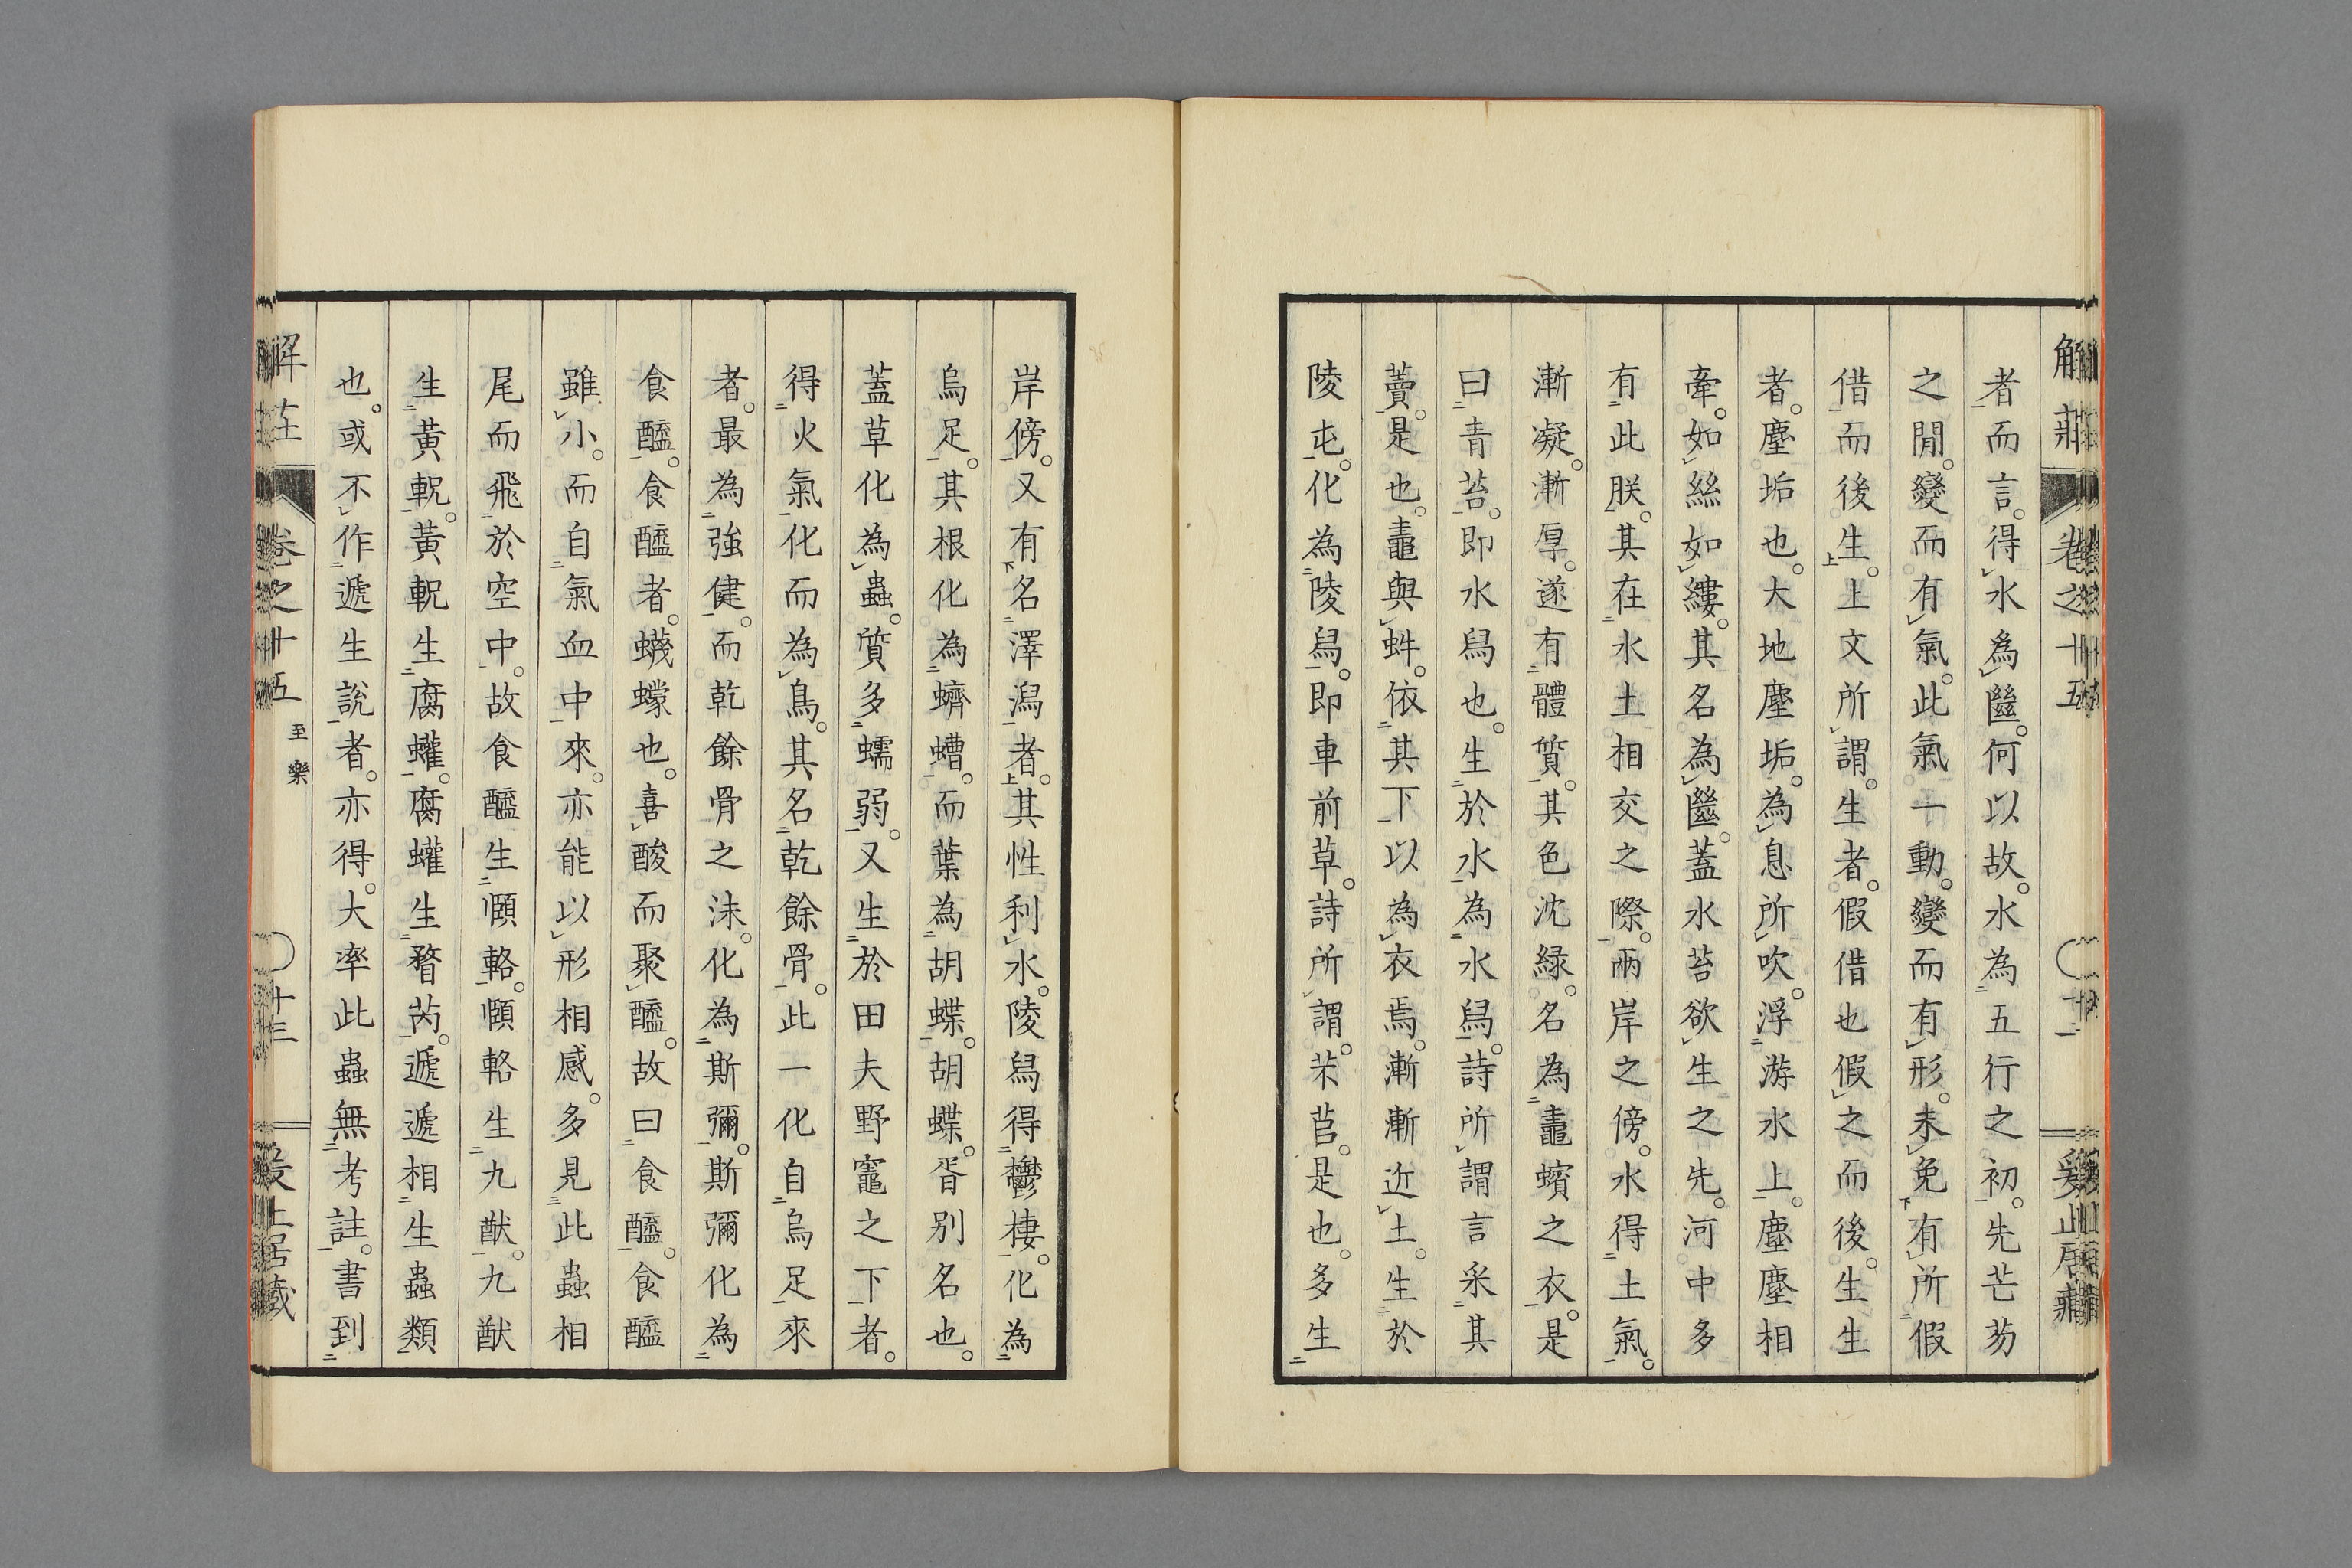 者而言。得水為㡭。何以故。水為五行之初。先芒芴
之閒。變而有氣。此氣一動。變而有形。未免有所假
借而後生。上文所謂。生者。假借也假之而後。生生
者。塵垢也。大地塵垢。為息所吹。浮游水上。塵塵相
牽。如絲如縷。其名為㡭。蓋水苔欲生之先。河中多
有此朕。其在水土相交之際。兩岸之傍。水得土氣。
漸凝。漸厚。遂有體質。其色沈綠。名為鼃蠙之衣。是
曰青苔。即水舄也。生於水為水舄。詩所謂言采其
藚。是也。鼃與蚌。依其下以為衣焉。漸漸近土。生於
陵屯。化為陵舄。即車前草。詩所謂。芣苢。是也。多生
岸傍。又有名澤瀉者。其性利水。陵舄得鬱棲。化為
烏足。其根化為蠐螬。而葉為胡蝶。胡蝶。胥別名也。
蓋草化為蟲。質多蠕弱。又生於田夫野竈之下者。
得火氣化而為鳥。其名乾餘骨。此一化自烏足來
者。最為強健。而乾餘骨之沫。化為斯彌。斯彌化為
食醯。食醯者。蠛蠓也。喜酸而聚醯。故曰食醯。食醯
雖小。而自氣血中來。亦能以形相感。多見此蟲相
尾而飛於空中。故食醯生頤輅。頤輅生九猷。九猷
生黃軦。黃軦生腐蠸。腐蠸生瞀芮。遞遞相生蟲類
也。或不作遞生說者。亦得。大率此蟲無考註。書到
解莊
卷之十五
至樂
十三